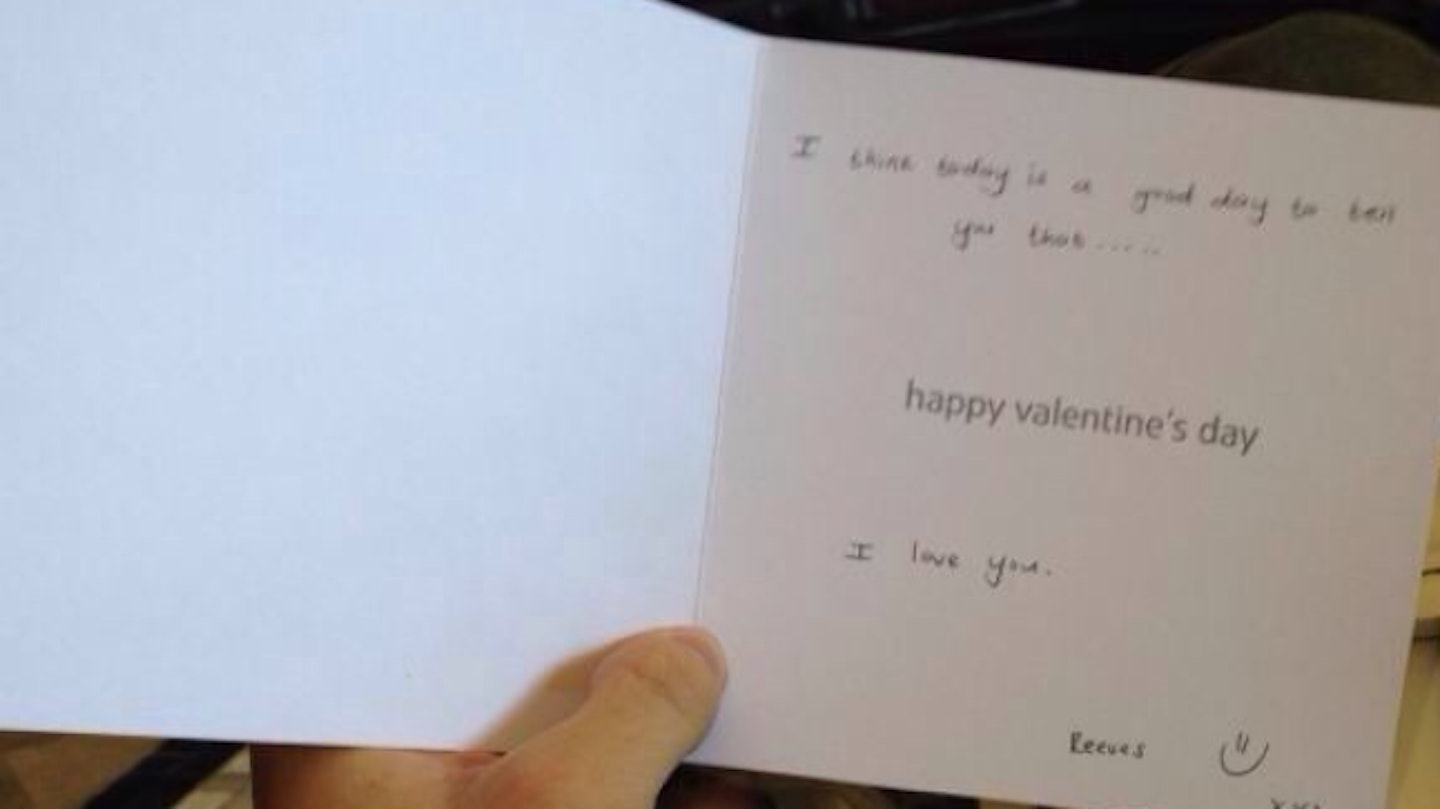 I think today is a good day to tell
you that......
happy valentine's day
I love you.
Reeves